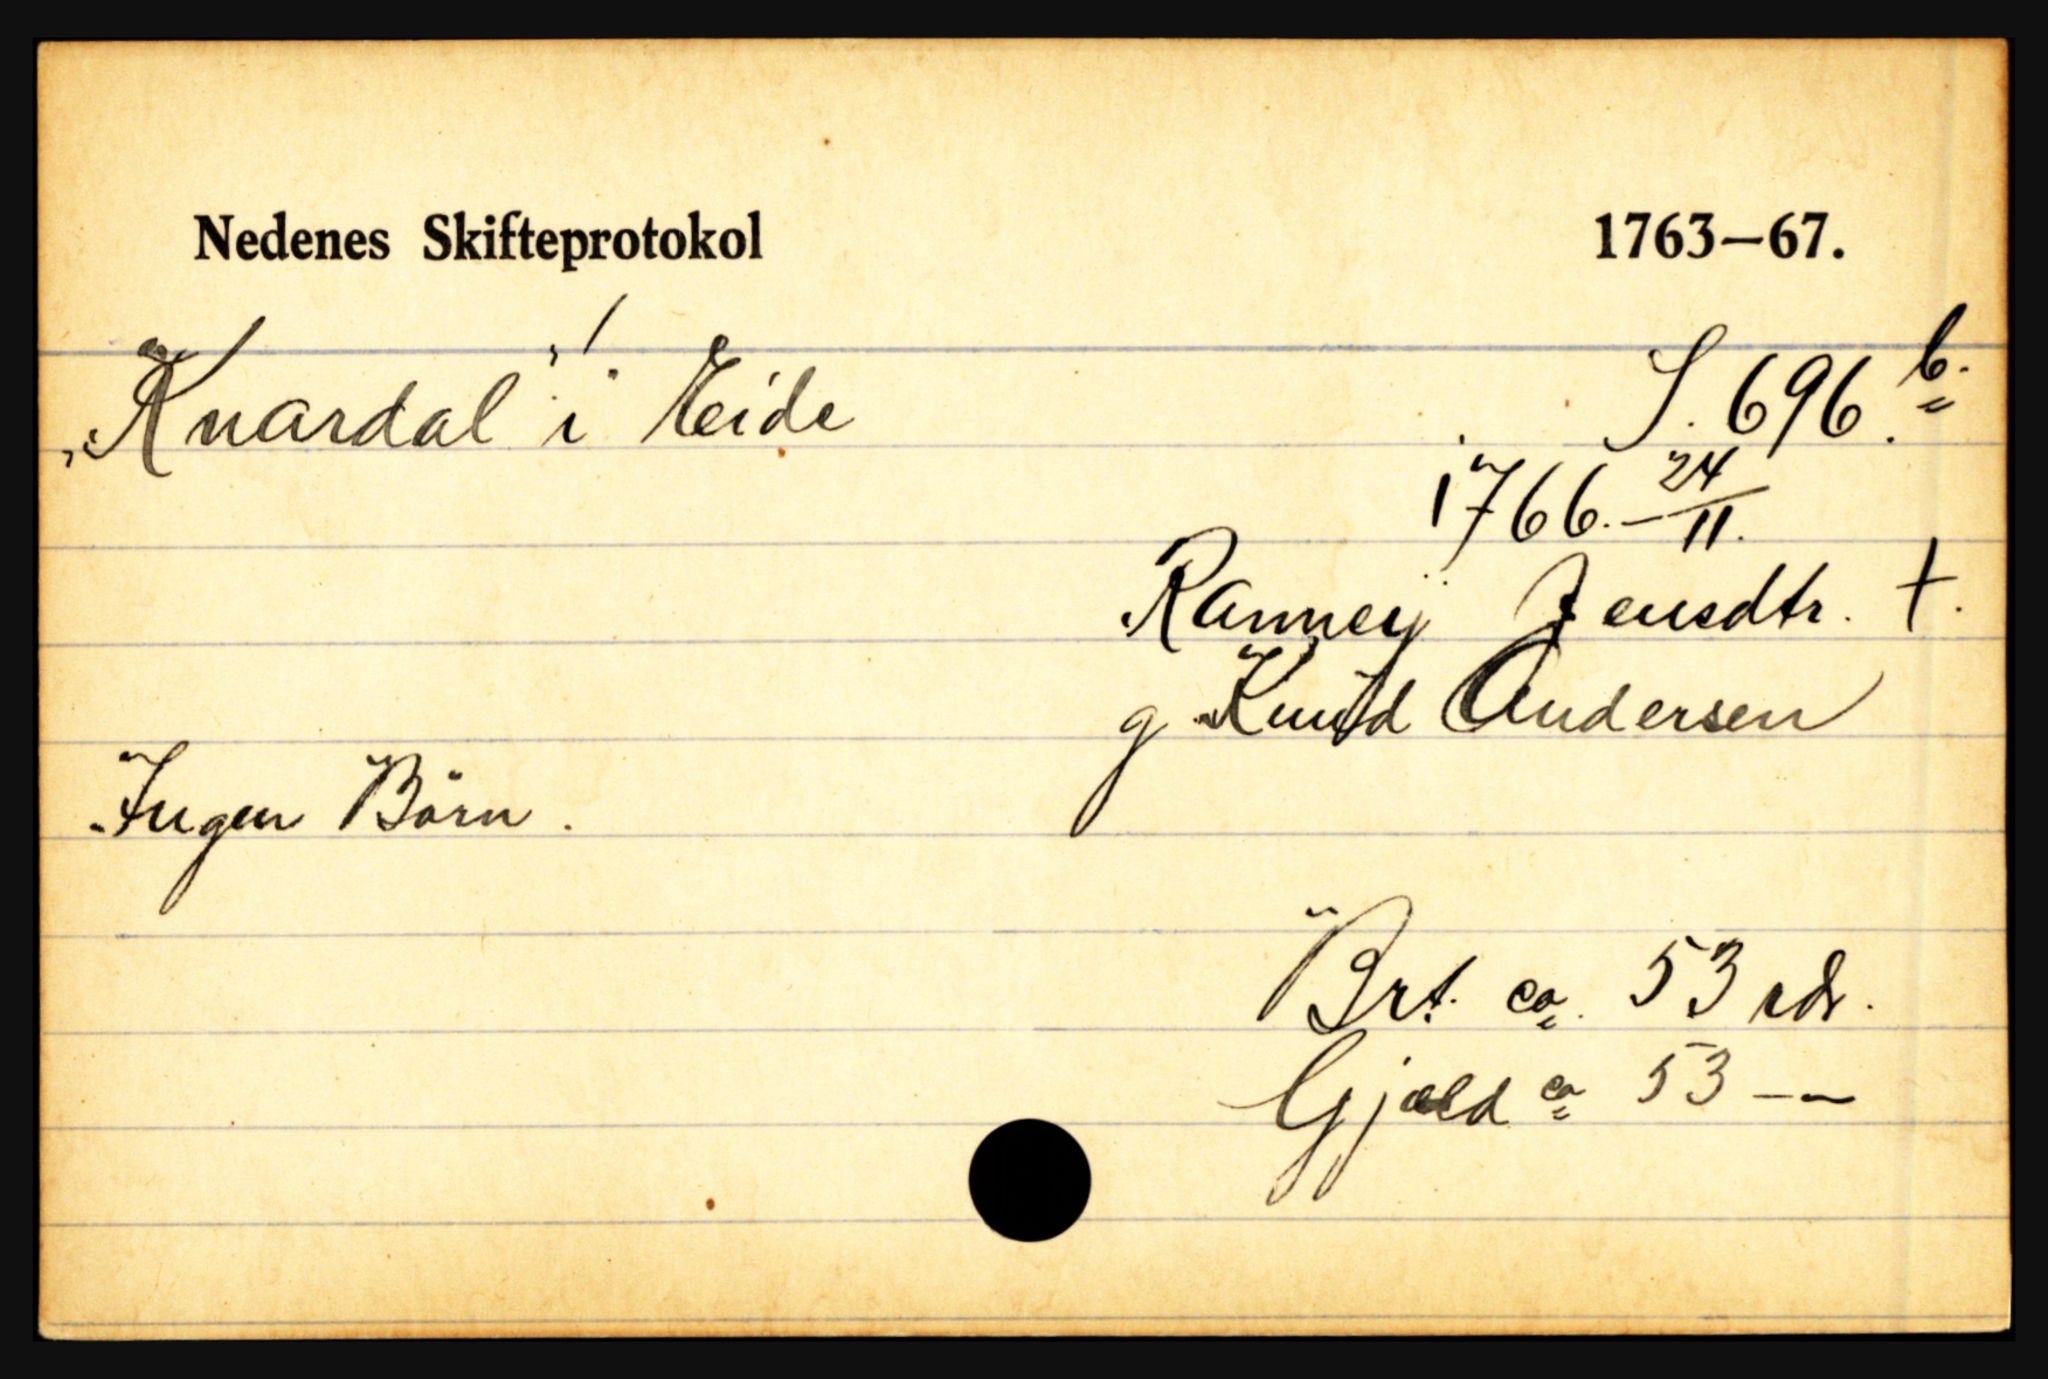 Nedenes Skifteprotokol 1763—67.
„Knardal" i Eide S. 696.b.
1766. – 24/11.
Ranneÿ Jensdtr. †.
g Knud Andersen
Ingen Börn.
Brt. ca. 53 rdr.
Gjæld ca 53 — —